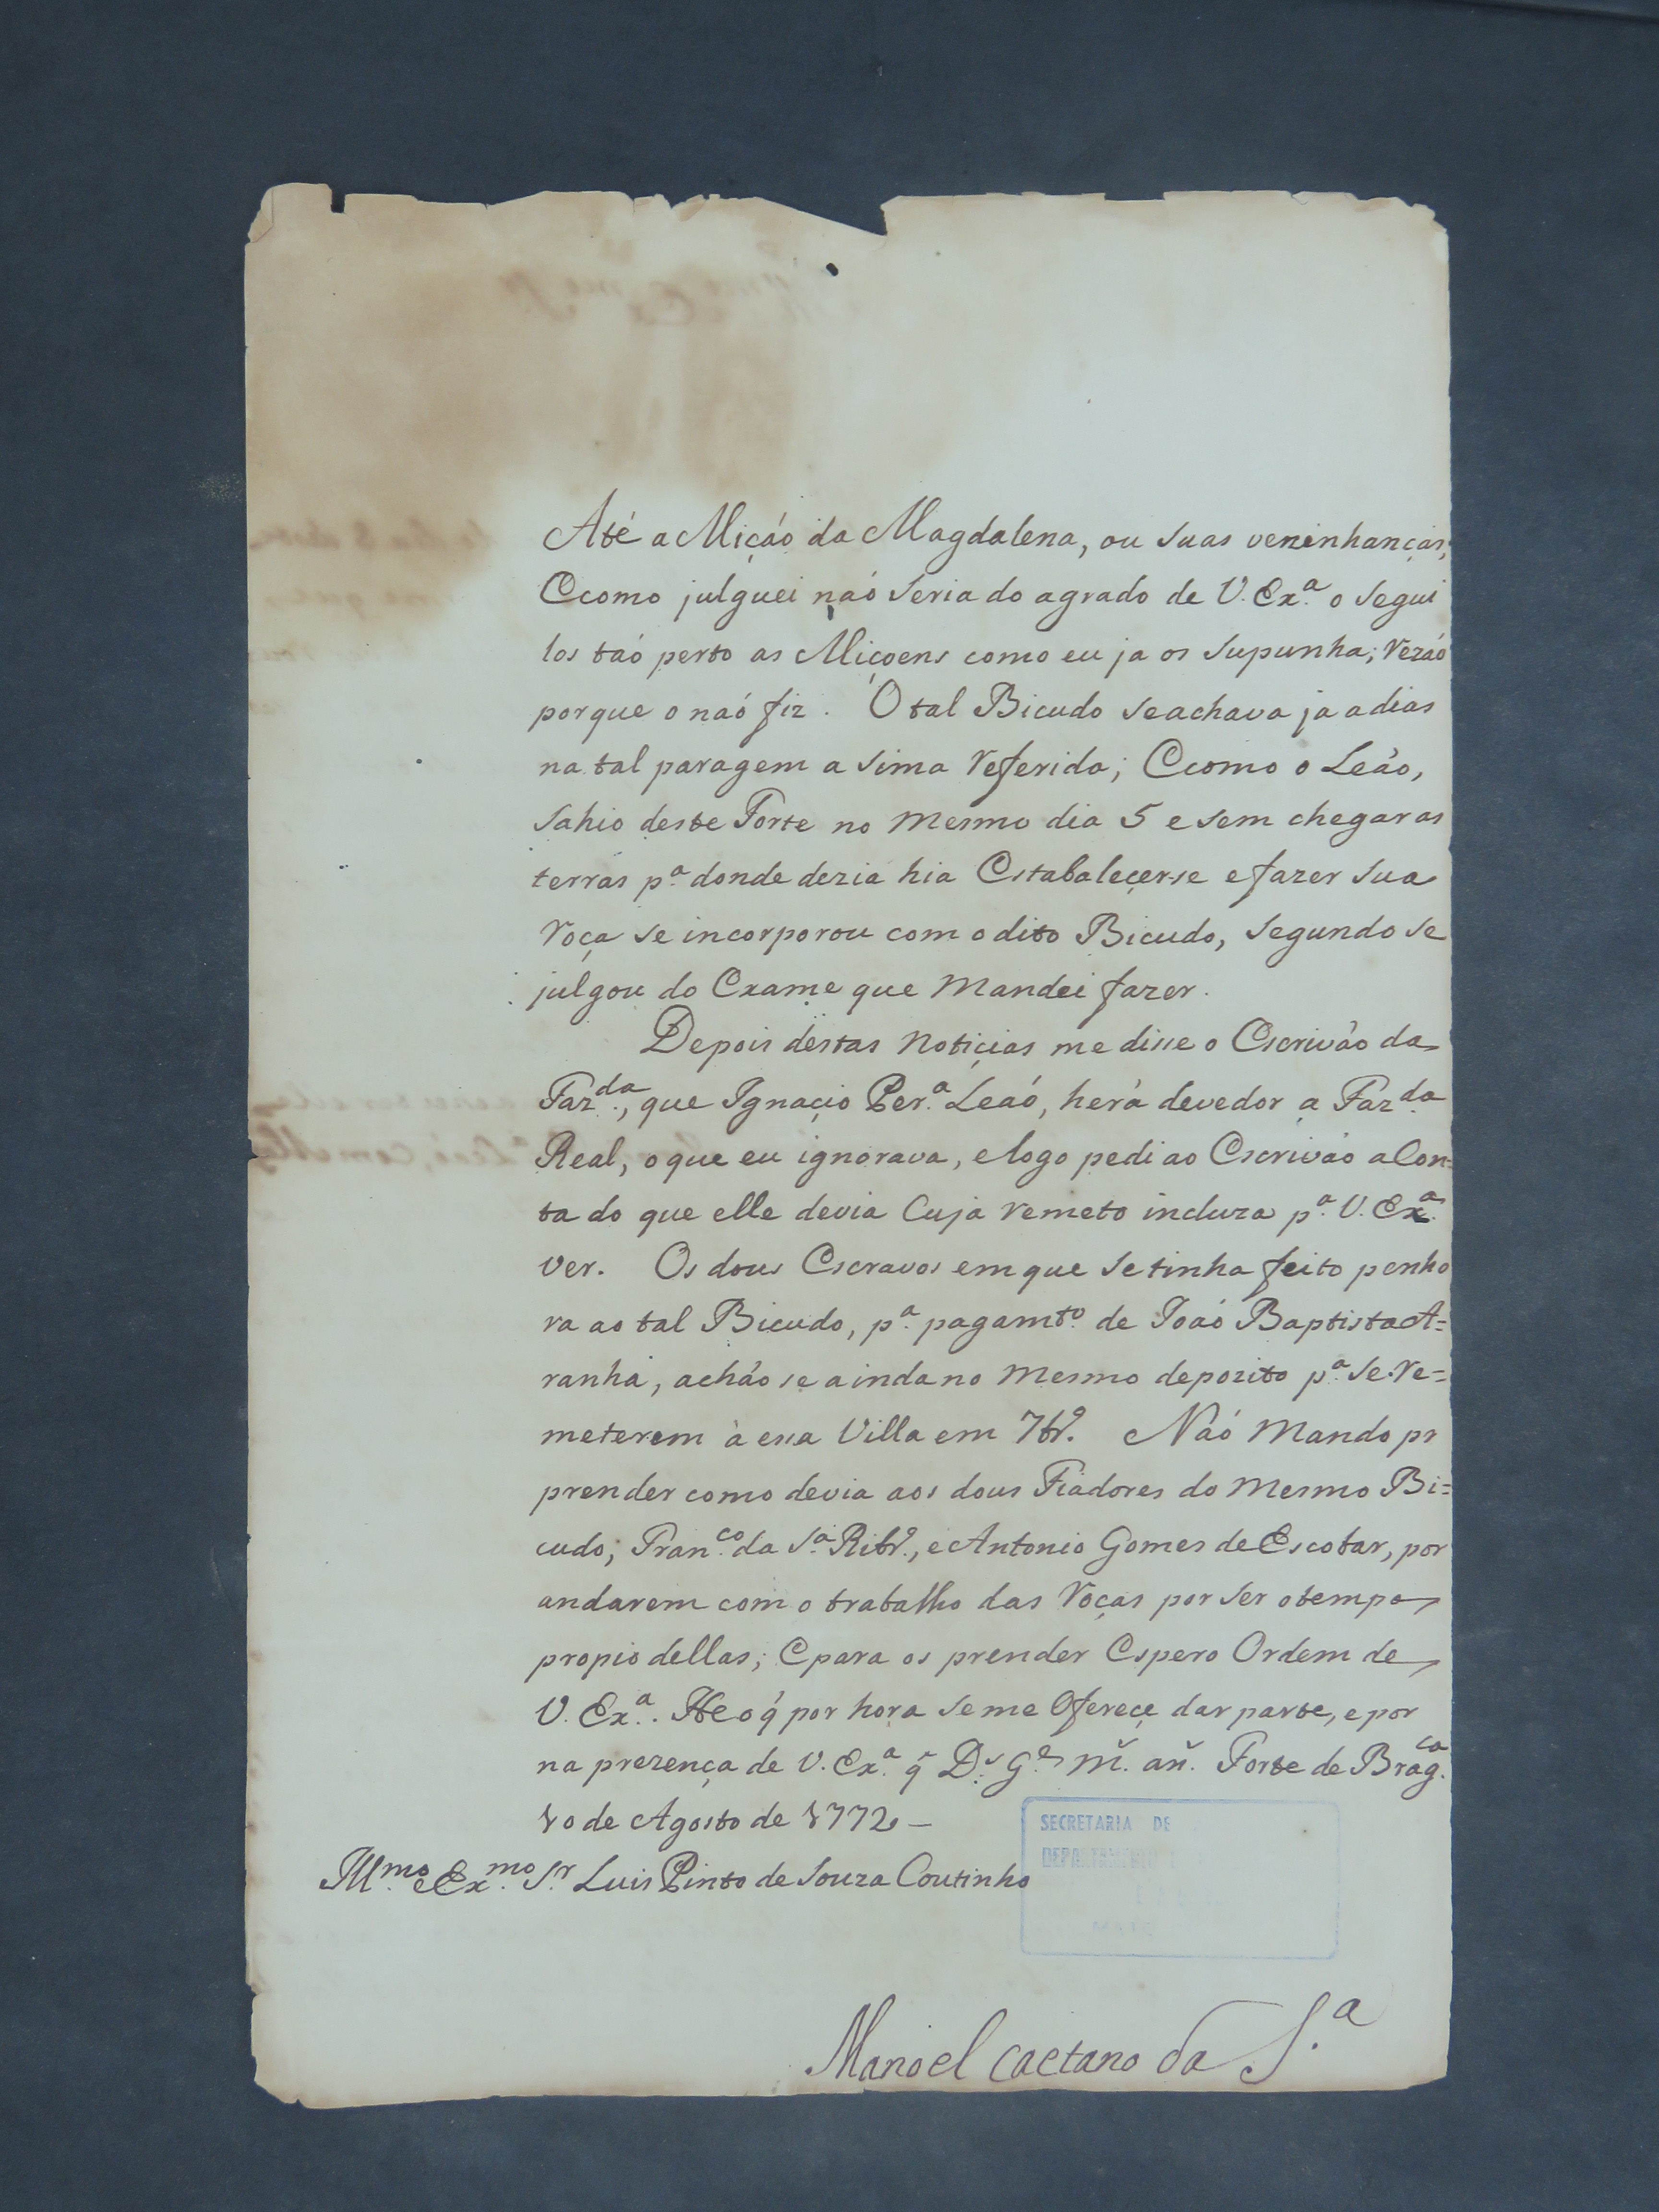 Até a Mição da Magdalena, ou suas veninhanças,
E como julguei naó seria do agrado de V. Ex.ª o segui
los taó perto as Miçoens como eu ja os supunha; rezaó
porque o naó fiz. O tal Bicudo se achava ja a dias
na tal paragem a sima referida; E como o Leáo,
sahio deste Forte no mesmo dia 5 e sem chegar as
terras p.ª donde dezia hia Estabaleçer-se e fazer sua
roça se incorporou com o dito Bicudo, segundo se
julgou do Exame que mandei fazer.
Depois destas notiçias me disse o Escriváo da
Faz.da, que Ignaçio Per.ª Leaó, hera devedor a Faz.da
Real, o que eu ignorava, e logo pedi ao Escriváo a Con=
ta do que elle devia Cuja remeto incluza p.ª V. Ex.ª
ver. Os dous Escravos em que se tinha feito penho
ra ao tal Bicudo, p.ª pagamt.º de Joaó Baptista A=
ranha, acháo se ainda no mesmo depozito p.ª se re=
meterem à essa Villa em 7br.º Naó mando pr
prender como devia aos dous Fiadores do mesmo Bi=
cudo; Fran.co da S.ª Ribr.º, e Antonio Gomes de Escobar, por
andarem com o trabalho das roças por ser o tempo
propio dellas; E para os prender Espero Ordem de
V. Ex.ª. He o q́ por hora se me Ofereçe dar parte, e por
na prezença de V. Ex.ª q̃ D.s G.e m̃. añ. Forte de Brag.ca
10 de Agosto de 1772 –
Ill.mo e Ex.mo S.r Luis Pinto de Souza Coutinho
SECRETARIA DE
Manoel Caetano da S.ª